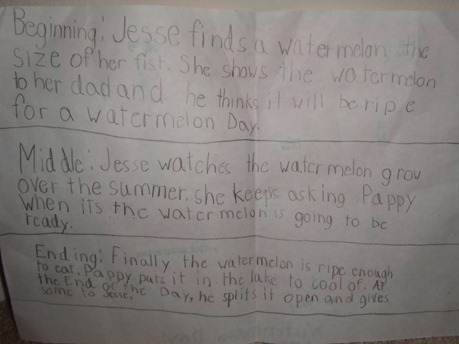 Beginning: Jesse finds a watermelon the
size of her fist. She shows the watermelon
to her dad and he thinks it will be ripe
for a watermelon Day.
Middle: Jesse watches the watermelon grow
over the summer. she keeps asking Pappy
when its the watermelon is going to be
ready.
Ending: Finally the watermelon is ripe enough
to eat. Pappy puts it in the lake to cool of. At
the End of the Day, he splits it open and gives
some to Jesse.